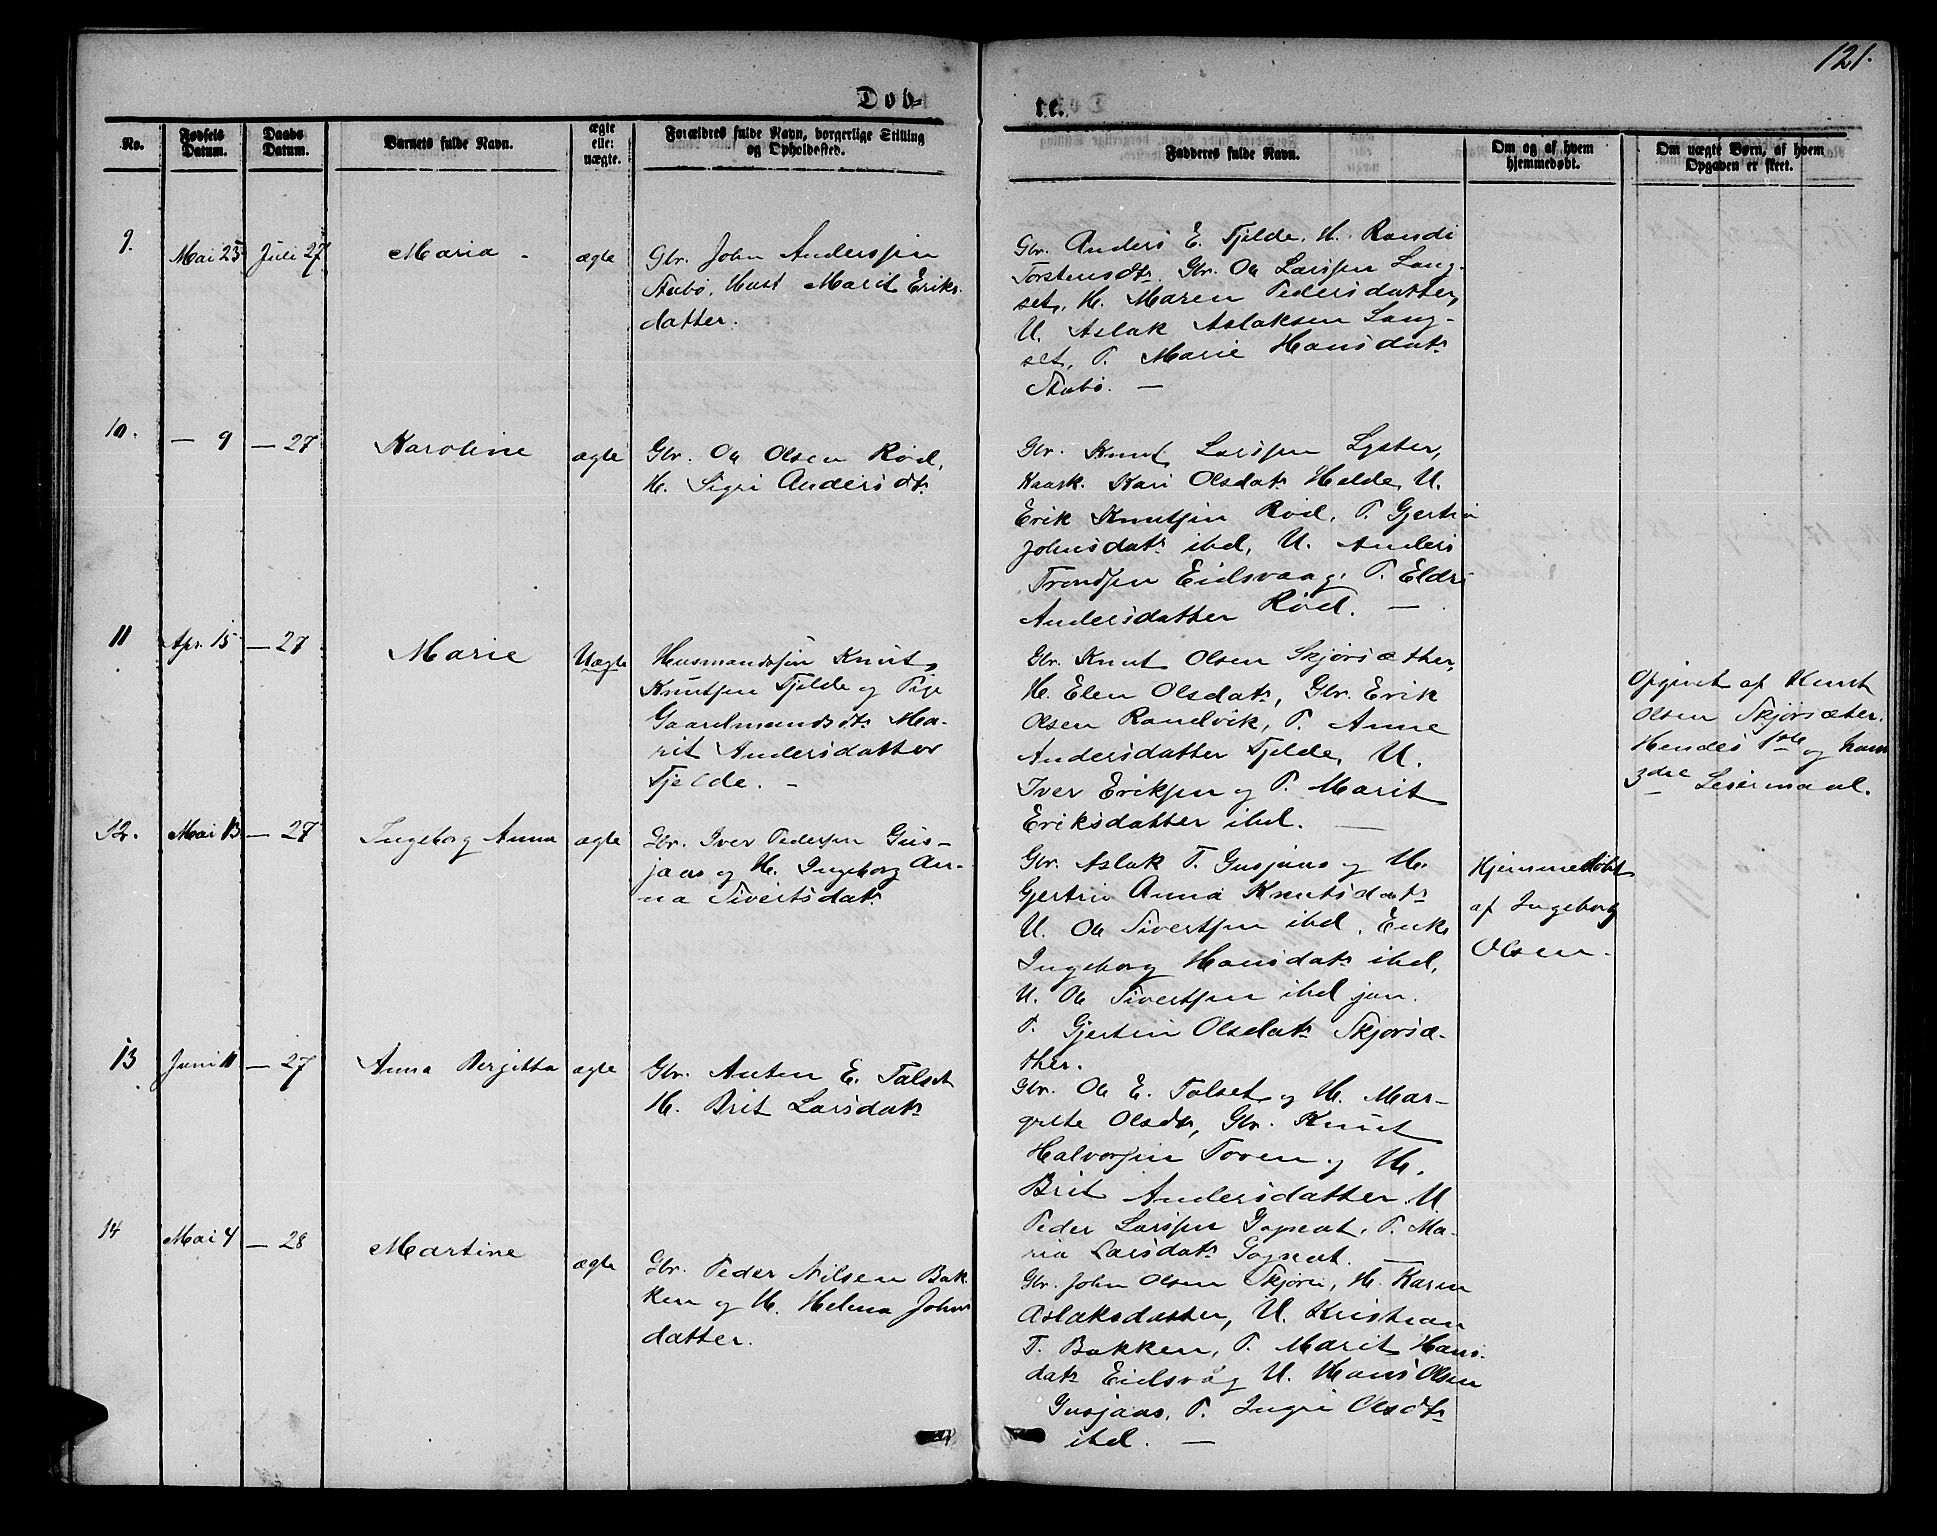 121.
Døb=
te.
No.
Fødsels Datum.
Daabs Datum.
Barnets fulde Navn.
ægte eller nægte.
Forældres fulde Navn, borgerlige Stilling og Opholdssted.
Fadderes fulde Navn.
Om og af hvem hjemmedøbt.
Om uægte Børn, af hvem Opgaven er skeet.
9.
Mai 25
Juli 27
Maria
ægte
Gbr. John Anderssen
Stubø, Hust Marit Eriks
datter.
Gbr. Anders E. Tjelde, H. Randi
Torstensdtr. Gbr. Ole Larssen Lang-
set, H. Maren Pedersdatter,
U. Aslak Aslaksen Lang-
set, P. Marie Hansdatr
Stubø. —
10.
— 9
— 27
Karoline
ægte
Gbr. Ole Olsen Rød,
H. Sigri Andersdtr
Gbr. Knut Larssen Lyster,
Kaark. Kari Olsdatr Helde, U.
Erik Knutsen Rød, P. Gjertru
Johnsdatr ibd, U. Anders
Trondsen Eidsvaag, P. Eldri
Andersdatter Rød. —
11
Apr. 15
— 27
Marie
Uægte
Husmandssøn Knut
Knutsen Tjelde og Pige
Gaardmandsdtr Ma-
rit Andersdatter
Tjelde. —
Gbr. Knut Olsen Skjørsæther,
H. Elen Olsdatr, Gbr. Erik
Olsen Randvik, P. Anne
Andersdatter Tjelde, U.
Iver Eriksen og P. Marit
Eriksdatter ibd. —
Opgivet af Knut
Olsen Skjørsæter.
Hendes 1ste og hans
3die Leiermaal.
12.
Mai 13
— 27
Ingeborg Anna
ægte
Gbr. Iver Pedersen Gus-
jaas og H. Ingeborg An-
na Sivertsdatr
Gbr. Aslak T. Gusjaas og H.
Gjertru Anna Knutsdatr
U. Ole Sivertsen ibd, Enke
Ingeborg Hansdatr ibd,
U. Ole Sivertsen ibd jun.
P. Gjertru Olsdatr Skjørsæ-
ther.
Hjemmedøbt
af Ingeborg
Olsen.
13
Juni 11
— 27
Anna Bergitta
ægte
Gbr. Anten E. Talset
H. Brit Larsdatr
Gbr. Ole E. Talset og H. Mar-
grete Olsdtr, Gbr. Knut
Halvorsen Toven og H.
Brit Andersdatter, U
Peder Larssen Gognat, P. Ma-
ria Larsdatr Gognat. —
14
Mai 4
— 28
Martine
ægte
Gbr. Peder Nilsen Bak
ken og H. Helena Johns
datter.
Gbr. John Olsen Skjøri, H. Karen
Aslaksdatter, U. Kristian
T. Bakken, P. Marit Hans-
datr Eidsvåg U. Hans Olsen
Gusjaas, P. Ingri Olsdtr
ibd. —